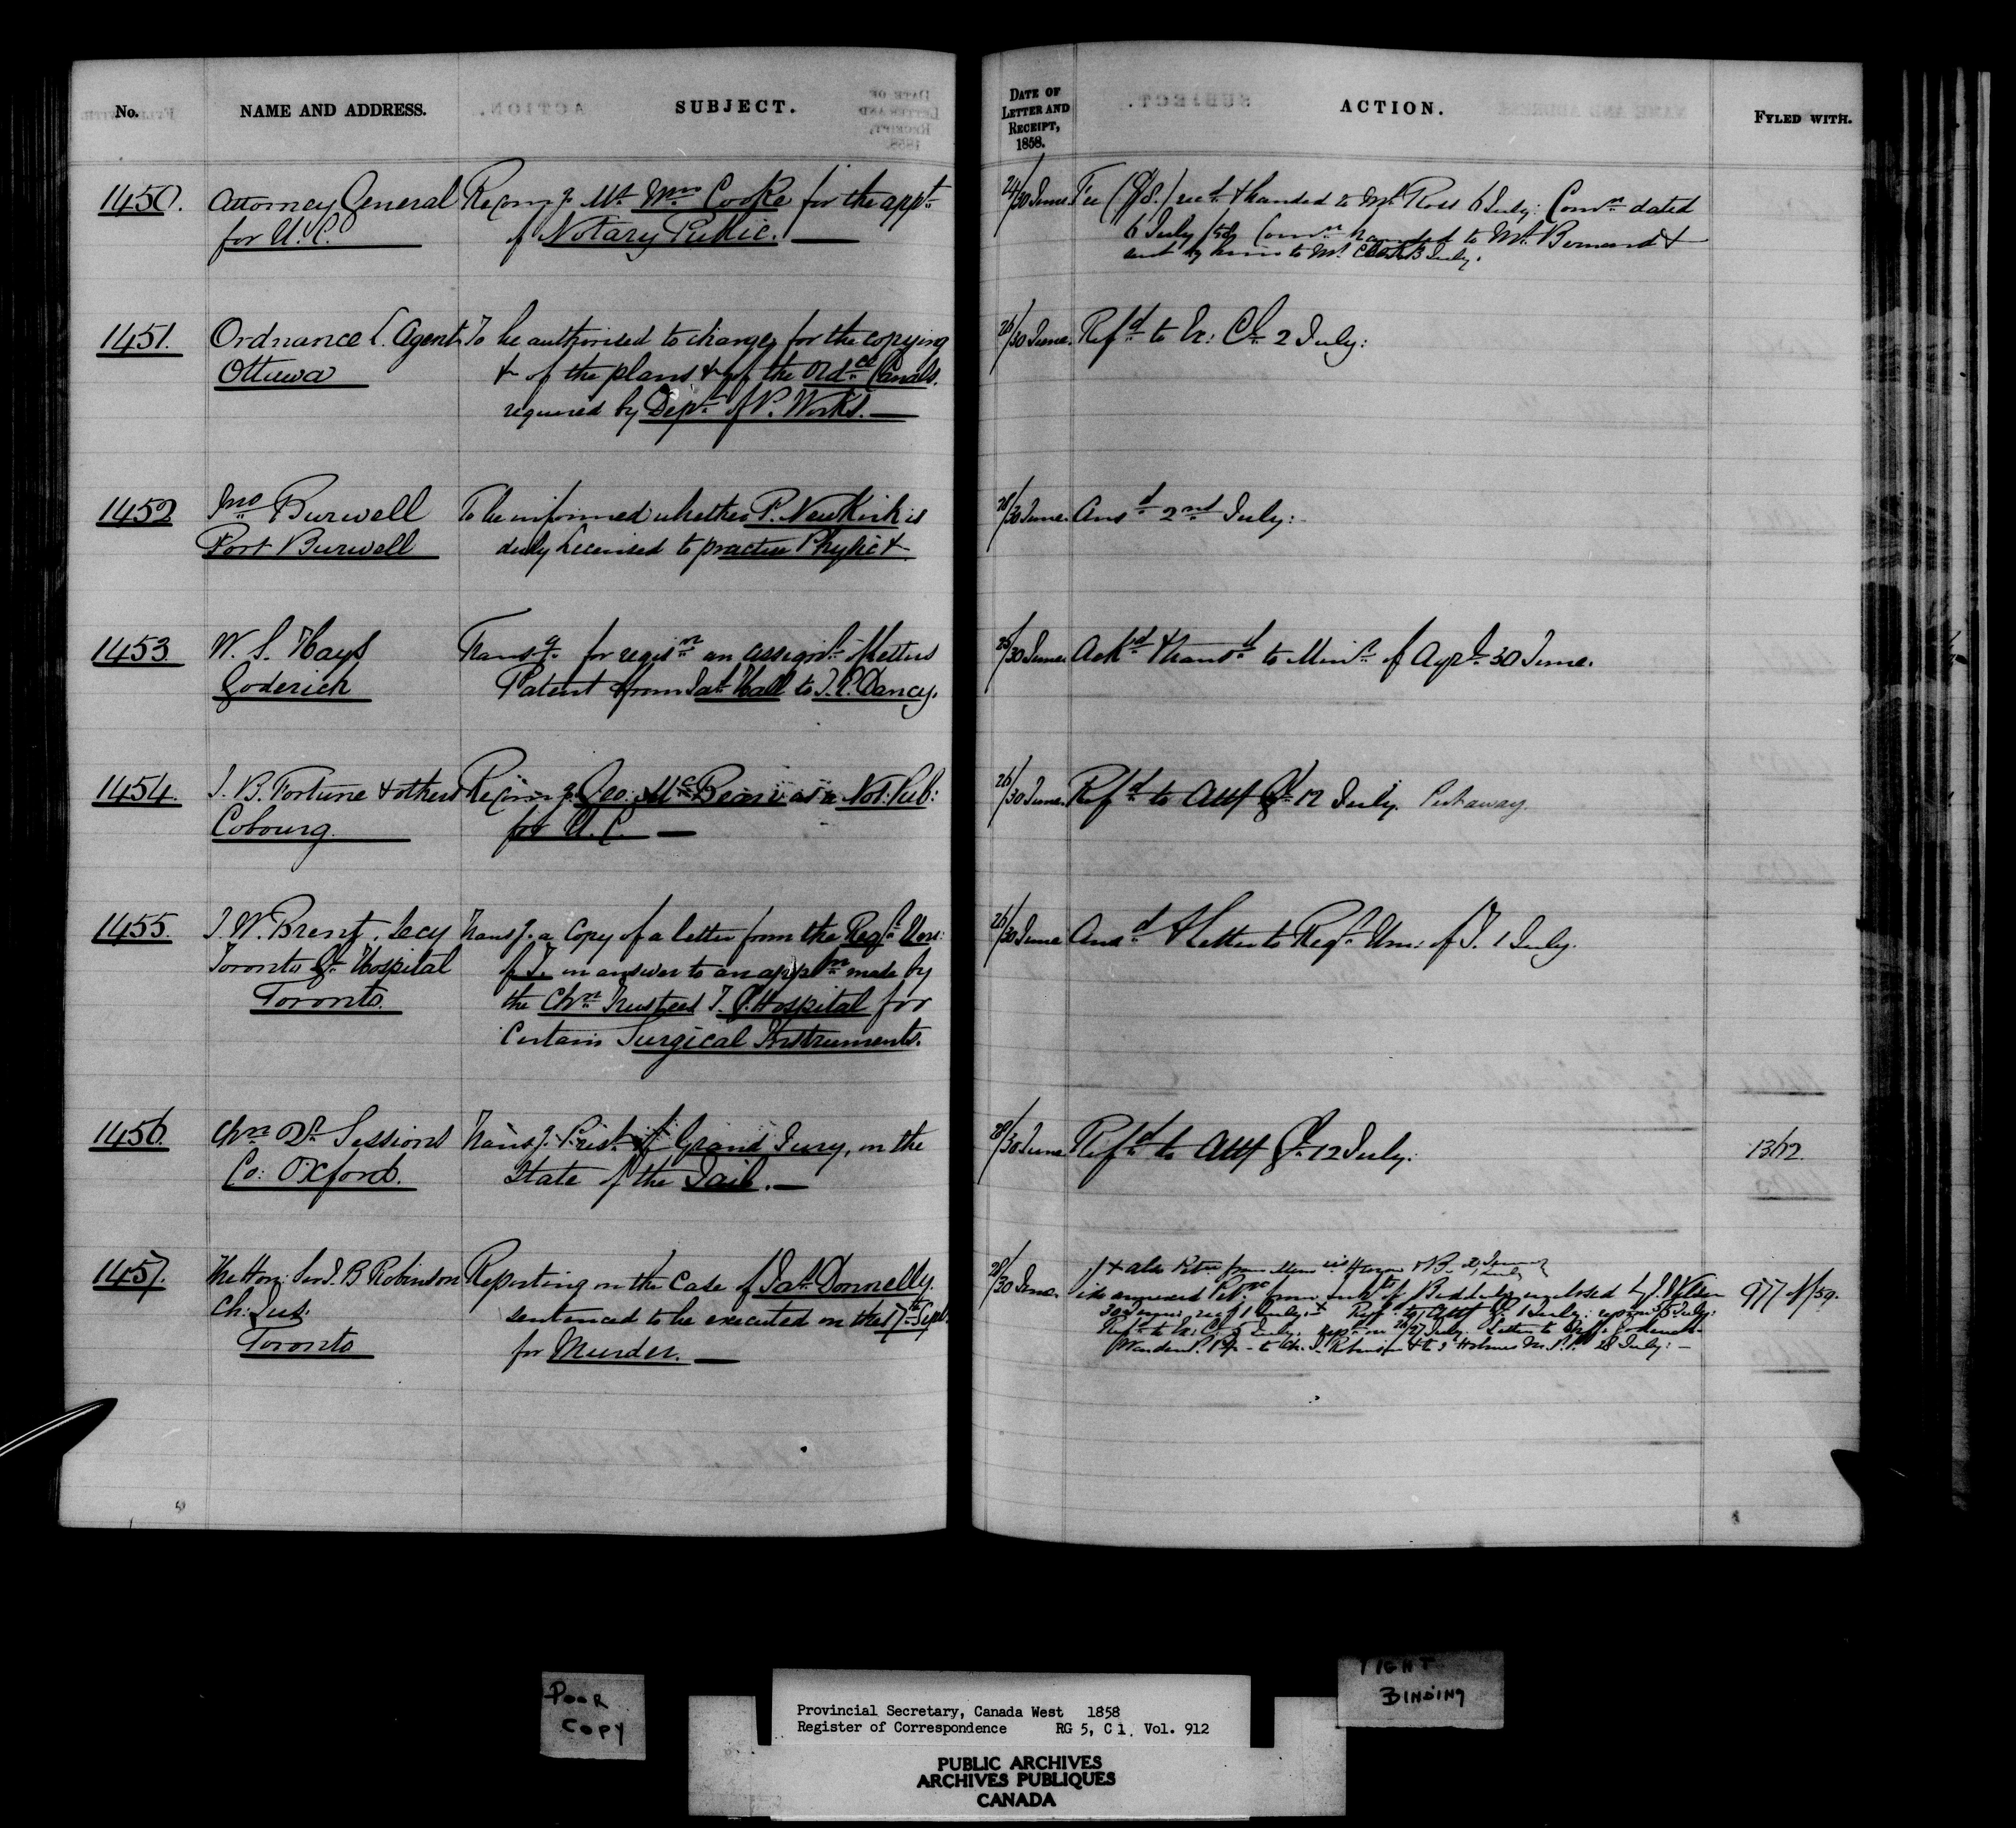 No.
NAME AND ADDRESS.
SUBJECT.
DATE OF
LETTER AND
RECEIPT,
1858.
ACTION.
FYLED WITH.
1450.
Attorney General
for U.C.
Recomg Mr Wm Cooke for the appt
of Notary Public.
24/30 June
Fee recd & handed to Mr Ross 6 July: Comn dated
6 July /58 Comn handed to Mr Bernard &
sent by him to Mr Cooke July.
1451.
Ordnance L. Agent
Ottawa
To be authorised to charge for the copying
& of the plans & of the Ordce Canals
required by Dept of P. Works.
26/30 June.
Refd to Ex: Cl 2 July:
1452
Jno Burwell
Port Burwell
To be informed whether P. NewKirk is
duly licensed to practise Physic &
28/30 June.
Ansd 2nd July:
1453.
W. S. Hays
Goderich
Transg for regisn an assignt of letters
Patent from Jas Hall to T. P. Dancy.
25/30 June.
Ackd & transd to Minr of Agrl 30 June.
1454.
J. B. Fortune & others
Cobourg.
Recomg Geo: McBean as a Not: Pub:
for U.C.
26/30 June.
Refd to Atty Gl 12 July. Put away.
1455.
J. W. Brent, Secy
Toronto Gl Hospital
Toronto.
Transg a Copy of a letter from the Regr Univ:
of T. in answer to an appln made by
the Chn Trustees T. G. Hospital for
Certain Surgical Instruments.
26/30 June
Ansd & Letter to Regr Univ: of T. 1 July.
1456.
Chn Qr Sessions
Co: Oxford.
Transg Prest of Grand Jury, on the
State of the Jail.
28/30 June
Refd to Atty Gl 12 July:
1312.
1457.
The Hon: Sir J. B Robinson
Ch: Jus:
Toronto
Reporting on the Case of Jas Donnelly
sentenced to be executed on the 17th Sept.
for Murder.
28/30 June.
& also Petn from
annexed Petn from of Biddulph enclosed by J.
30 June, recd 1 July: Refd to Atty Gl 1 July: 5 July:
Refd to Ex: Cl 5 July: Rept on 26/27 July. Letter to Shff: Goderich
Warden P. Py - to Ch: J. Robinson & to J Holmes M.P.P. 28 July:
977 of/59.
POOR
COPY
Provincial Secretary, Canada West 1858
Register of Correspondence RG 5, C 1, Vol. 912
PUBLIC ARCHIVES
ARCHIVES PUBLIQUES
CANADA
TIGHT
BINDING